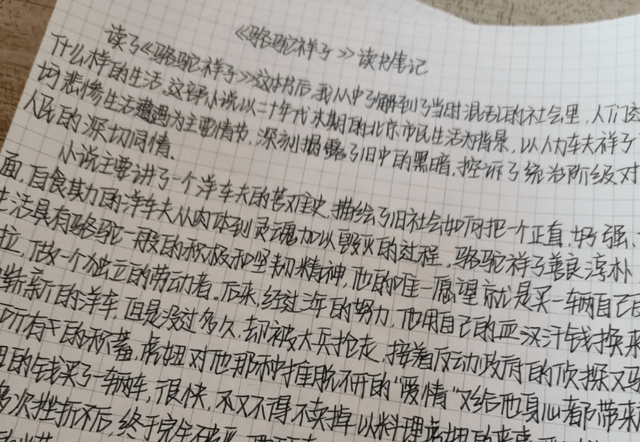 《骆驼祥子》读书笔记
读了《骆驼祥子》这本书后,我从中了解到了当时混乱的社会里,人们
什么样的生活。这部小说以二十年代末期的北京市民生活为背景,以人力车夫祥子
坷悲惨生活遭遇为主要情节,深刻揭露了旧中的黑暗,控诉了统治阶级对
人民的深切同情。
小说主要讲了一个洋车夫的苦难史,描绘了旧社会如何把一个正直、好强、
面,自食其力的洋车夫从肉体到灵魂加以毁灭的过程。骆驼祥子善良淳朴
生活具有骆驼一般的积极和坚韧精神,他的唯一愿望就是买一辆自己
拉,做一个独立的劳动者。后来,经过3年的努力,他用自己的血汗汗钱换来
崭新的洋车,但是没过多久,却被大兵抢走,接着反动政府的侦探又
所有的积蓄,虎妞对他那种推脱不开的“爱情”又给他身心都带来
的钱买了一辆车,很快,不又不得不卖掉以料理虎妞的
多次挫折后,终于完全